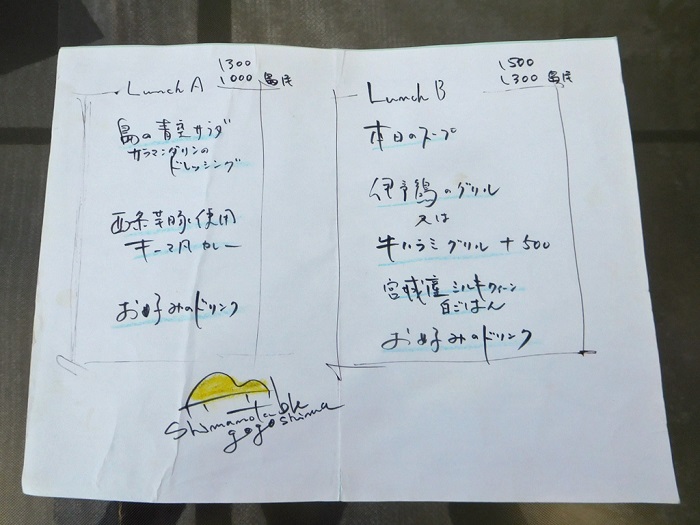 1300
Lunch A 1000 島民
島の青空サラダ
カラマンダリンの
ドレッシング
西条芋豚使用
キーマ月カレー
お好みのドリンク
1500
Lunch B 1300 島民
本日のスープ
伊予鶏のグリル
又は
牛ハラミグリル +500
宮城産ミルキークィーン
白ごはん
お好みのドリンク
shimamotable
gogoshima